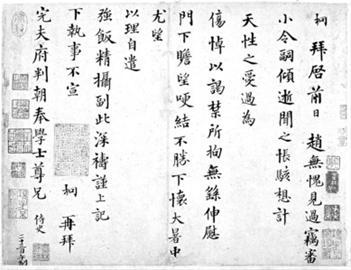 柯 拜啓前日 趙無愧見過竊審
小令嗣傾逝聞之悵駭想計
天性之愛過為
傷悼以謁禁所拘無繇伸慰
門下瞻望哽結不勝下懷大暑中
尤望
以理自遣
強飯精攝副此深禱謹上記
下執事不宣 柯 再拜
完夫府判朝奉學士尊兄 侍史